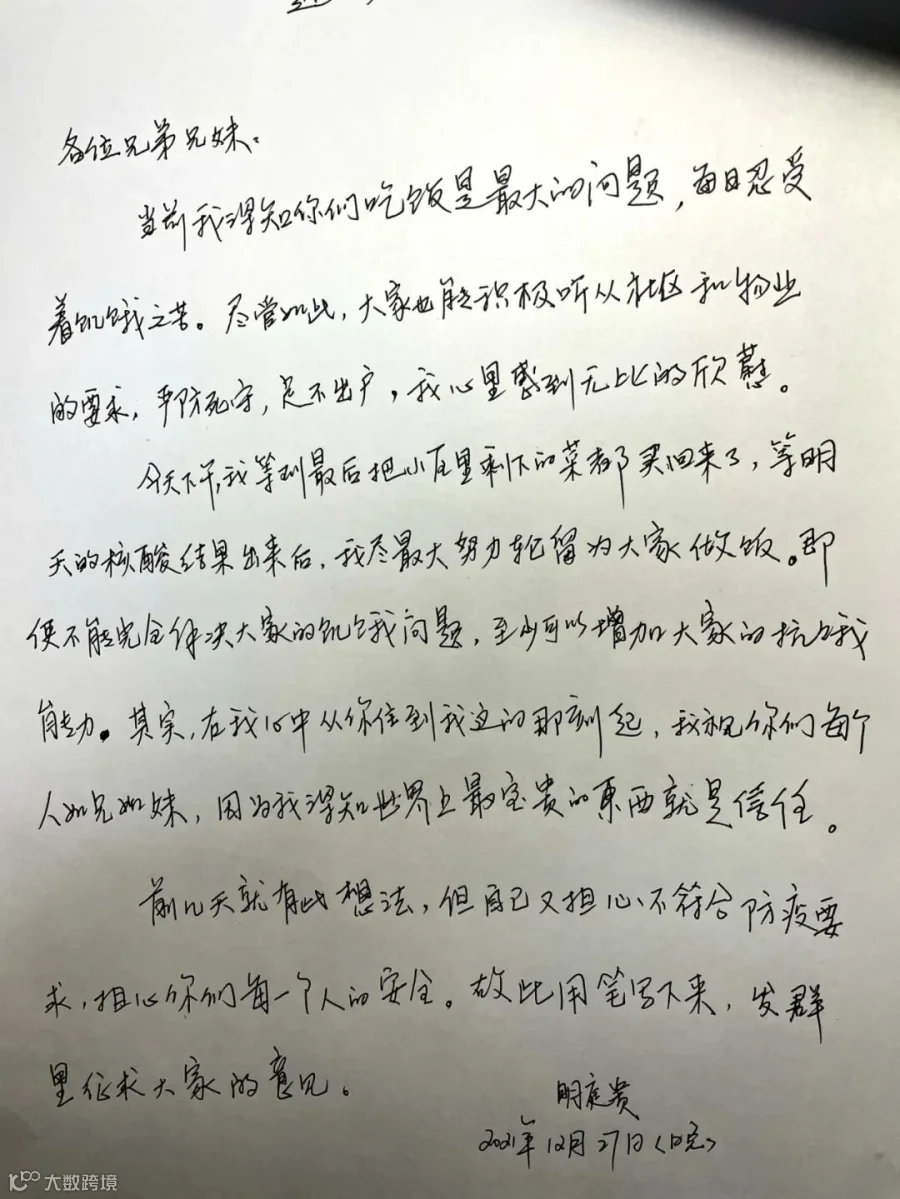 各位兄弟兄妹:
当前我得知你们吃饭是最大的问题,每日忍受
着饥饿之苦。尽管如此,大家也能积极听从社区和物业
的要求,严防死守,足不出户,我心里感到无比的欣慰。
今天下午,我等到最后把小庄里剩下的菜都买回来了,等明
天的核酸结果出来后,我尽最大努力轮留为大家做饭。即
使不能完全解决大家的饥饿问题,至少可以增加大家的抗饿
能力。其实,在我心中从你住到我这的那刻起,我视你们每个
人如兄如妹,因为我得知世界上最宝贵的東西就是信任。
前几天就有此想法,但自己又担心不符合防疫要
求,担心你们每一个人的安全。故此用笔写下来,发群
里征求大家的意见。
明庭贵
2021年12月27日(晚)
大数跨境